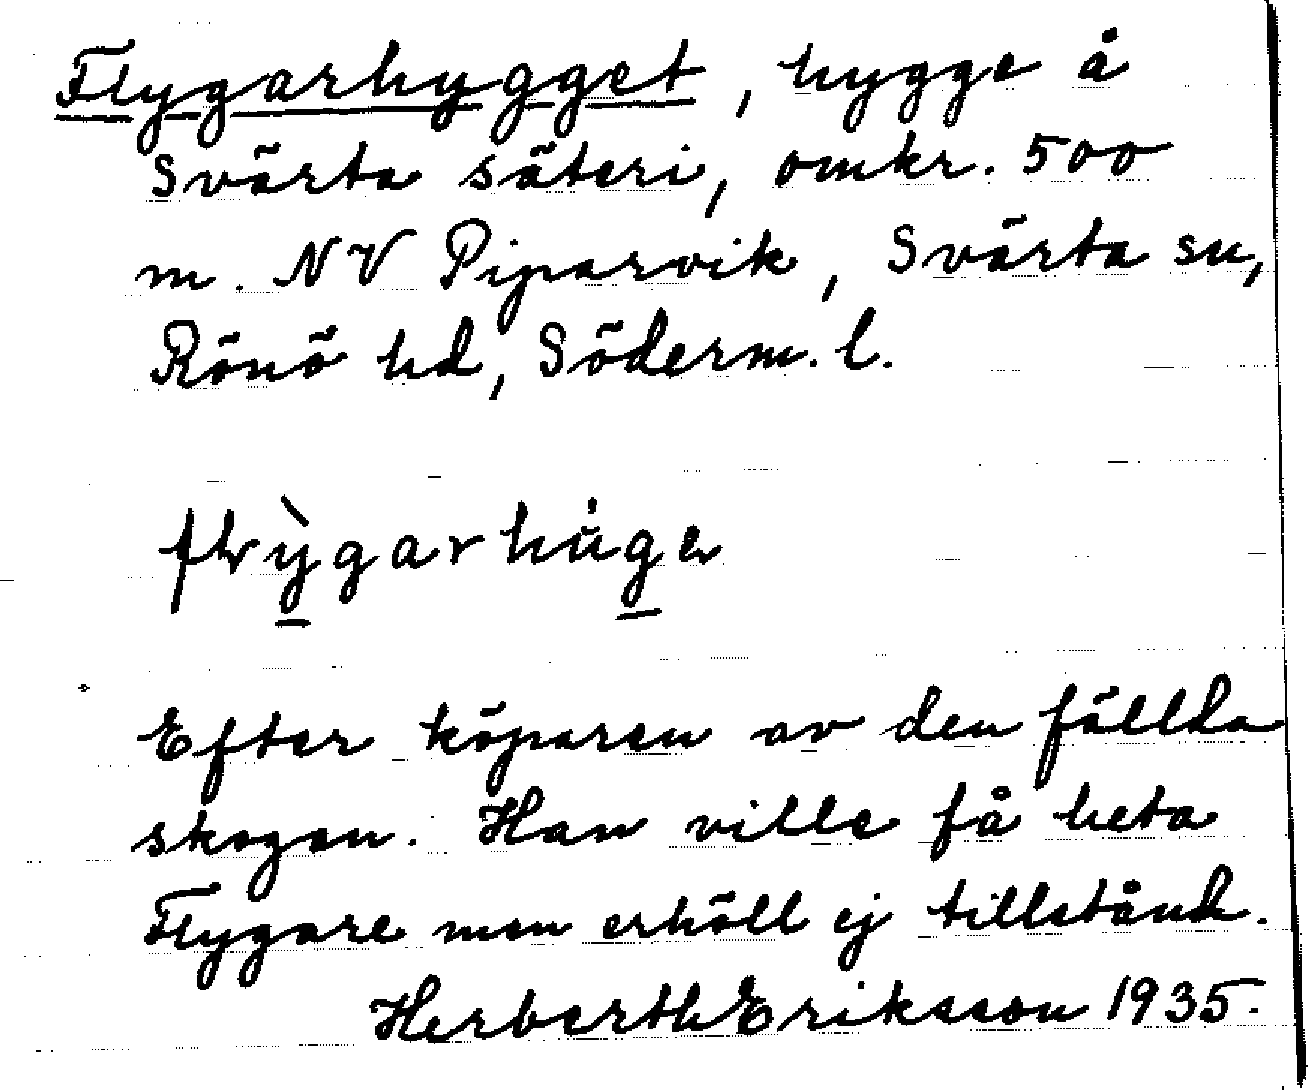 Flygarhygget, hygge å
Svärta säteri, omkr. 500
m. NV Piparvik, Svärta sn,
Rönö hd, Söderm. l.
Efter köparen av den fällda
skogen. Han ville få heta
Flygare men erhöll ej tillstånd.
Herberth Eriksson 1935.